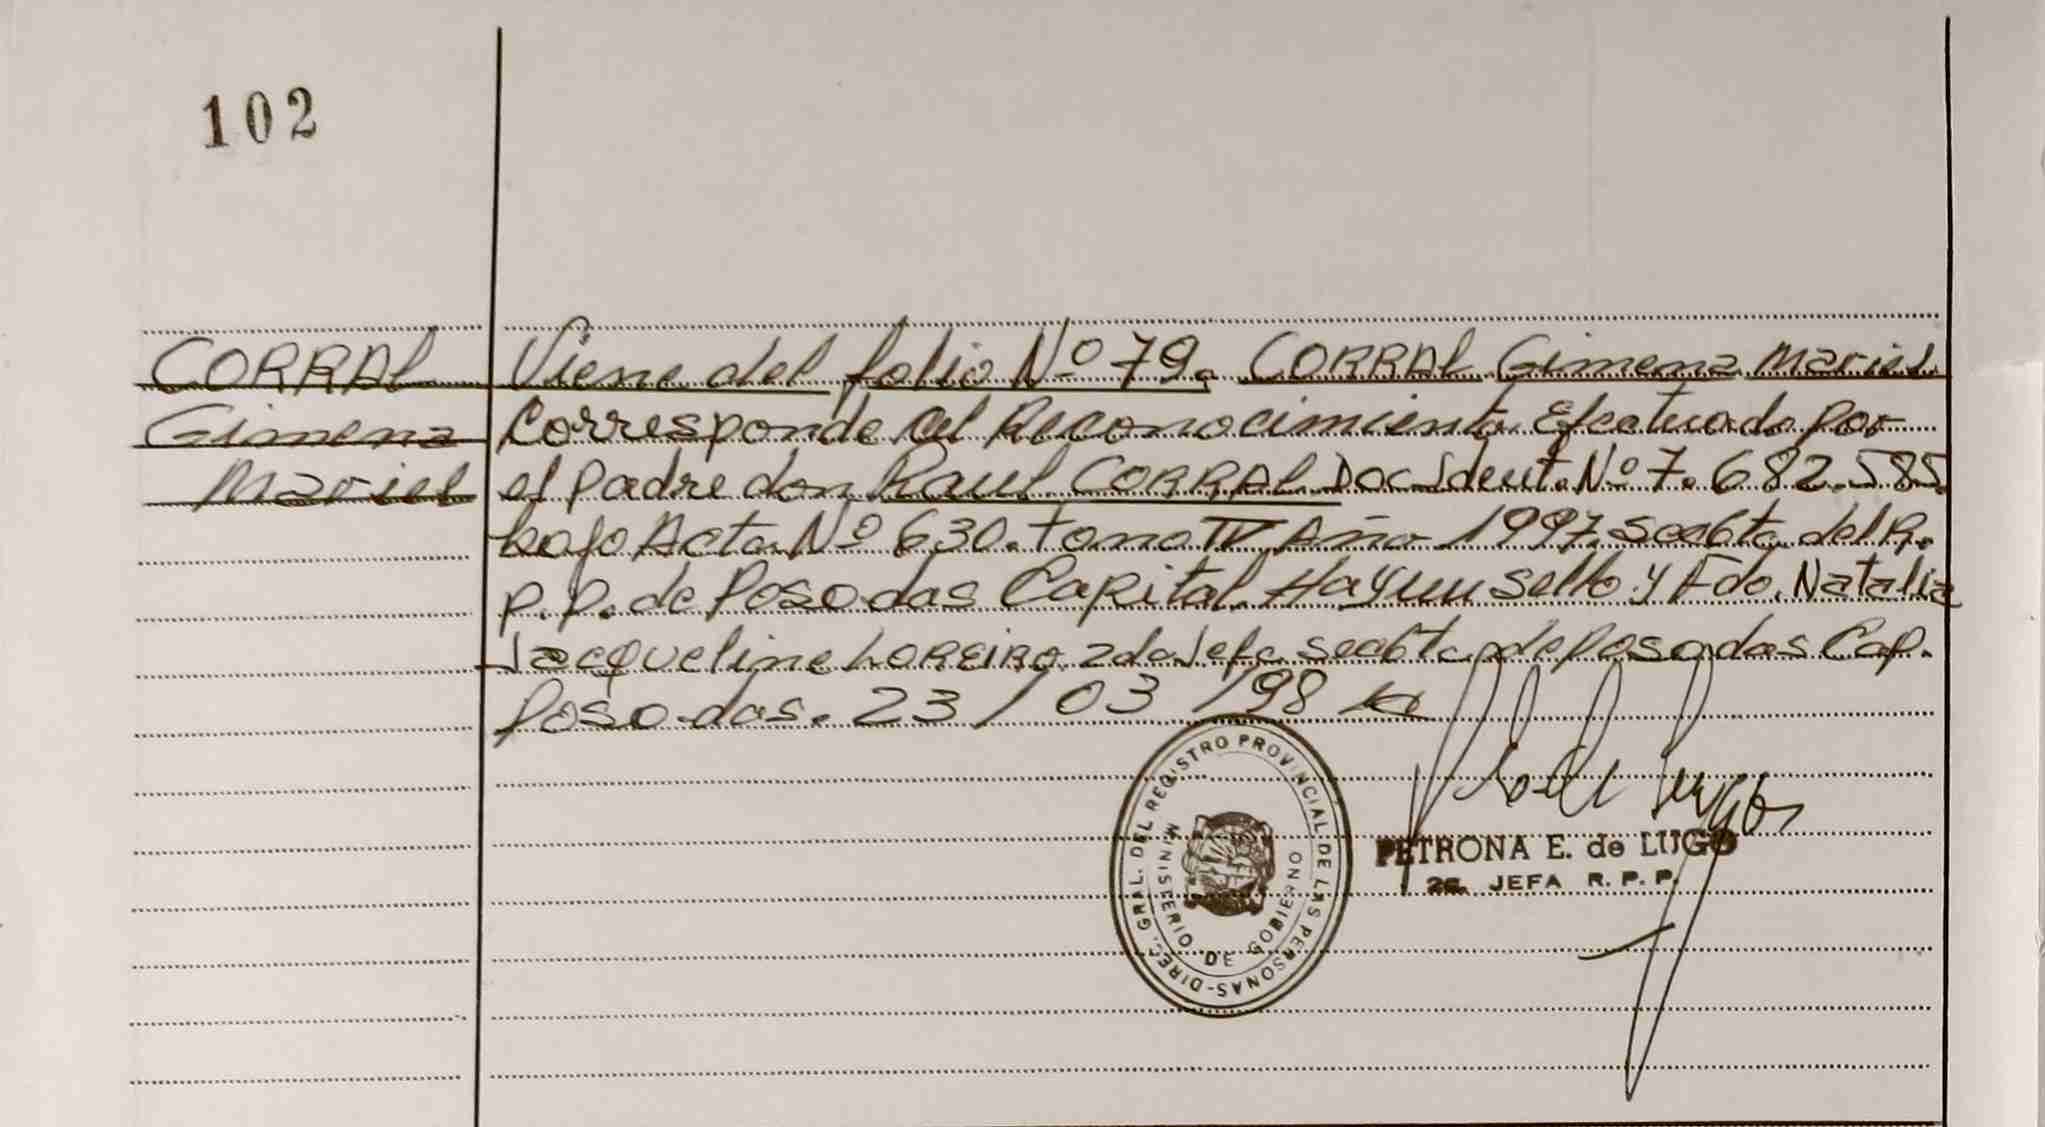 102
CORRAL
Gimena
Mariel
Viene del folio Nº 79. CORRAL Gimena Mariel.
Corresponde al Reconocimiento Efectuado por
el padre don Raul CORRAL Doc. Ident. Nº 7.682.585
bajo Acta Nº 630. tomo IV Año 1997. Secc 6ta del R.
P.P. de Posadas Capital. Hay un Sello y Fdo. Natalia
Jacqueline LOREIRO 2da Jefa Secc 6ta de Posadas Cap.
Posadas. 23/03/98
DIREC. GRAL. DEL REGISTRO PROVINCIAL DE LAS PERSONAS-
MINISTERIO DE GOBIERNO
PETRONA E. de LUGO
2a. JEFA R.P.P.